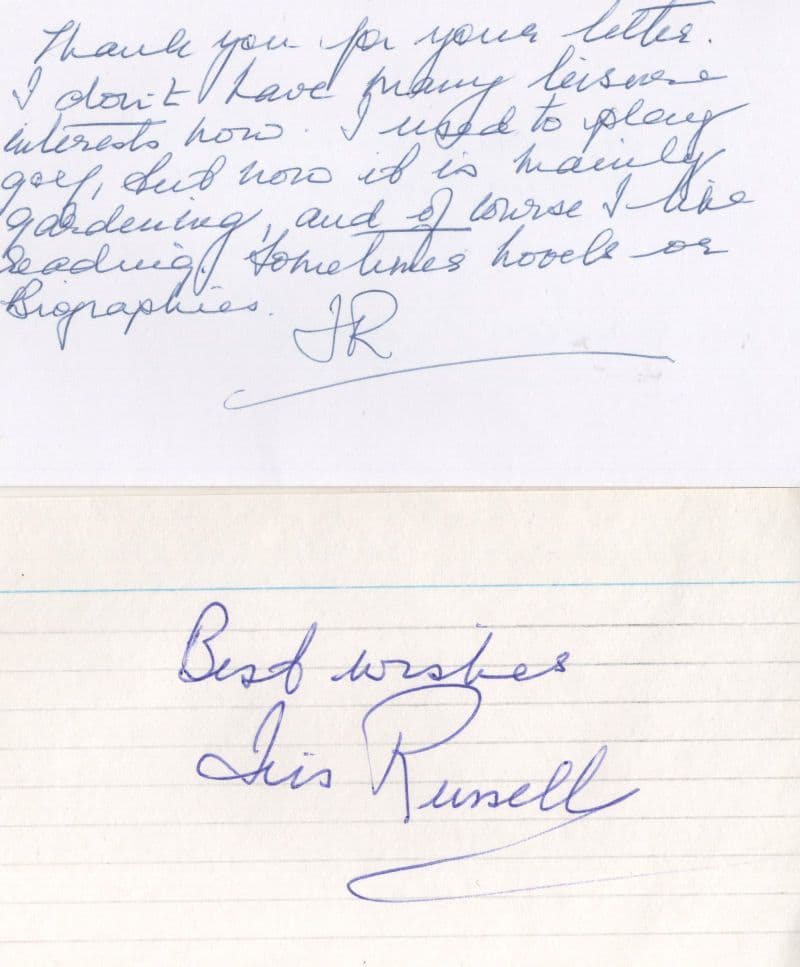 Thank you for your letter.
I don't have many leisure
interests now. I used to play
golf, but now it is mainly
gardening, and of course I like
reading. Sometimes novels or
Biographies.
IR
Best wishes
Iris Russell